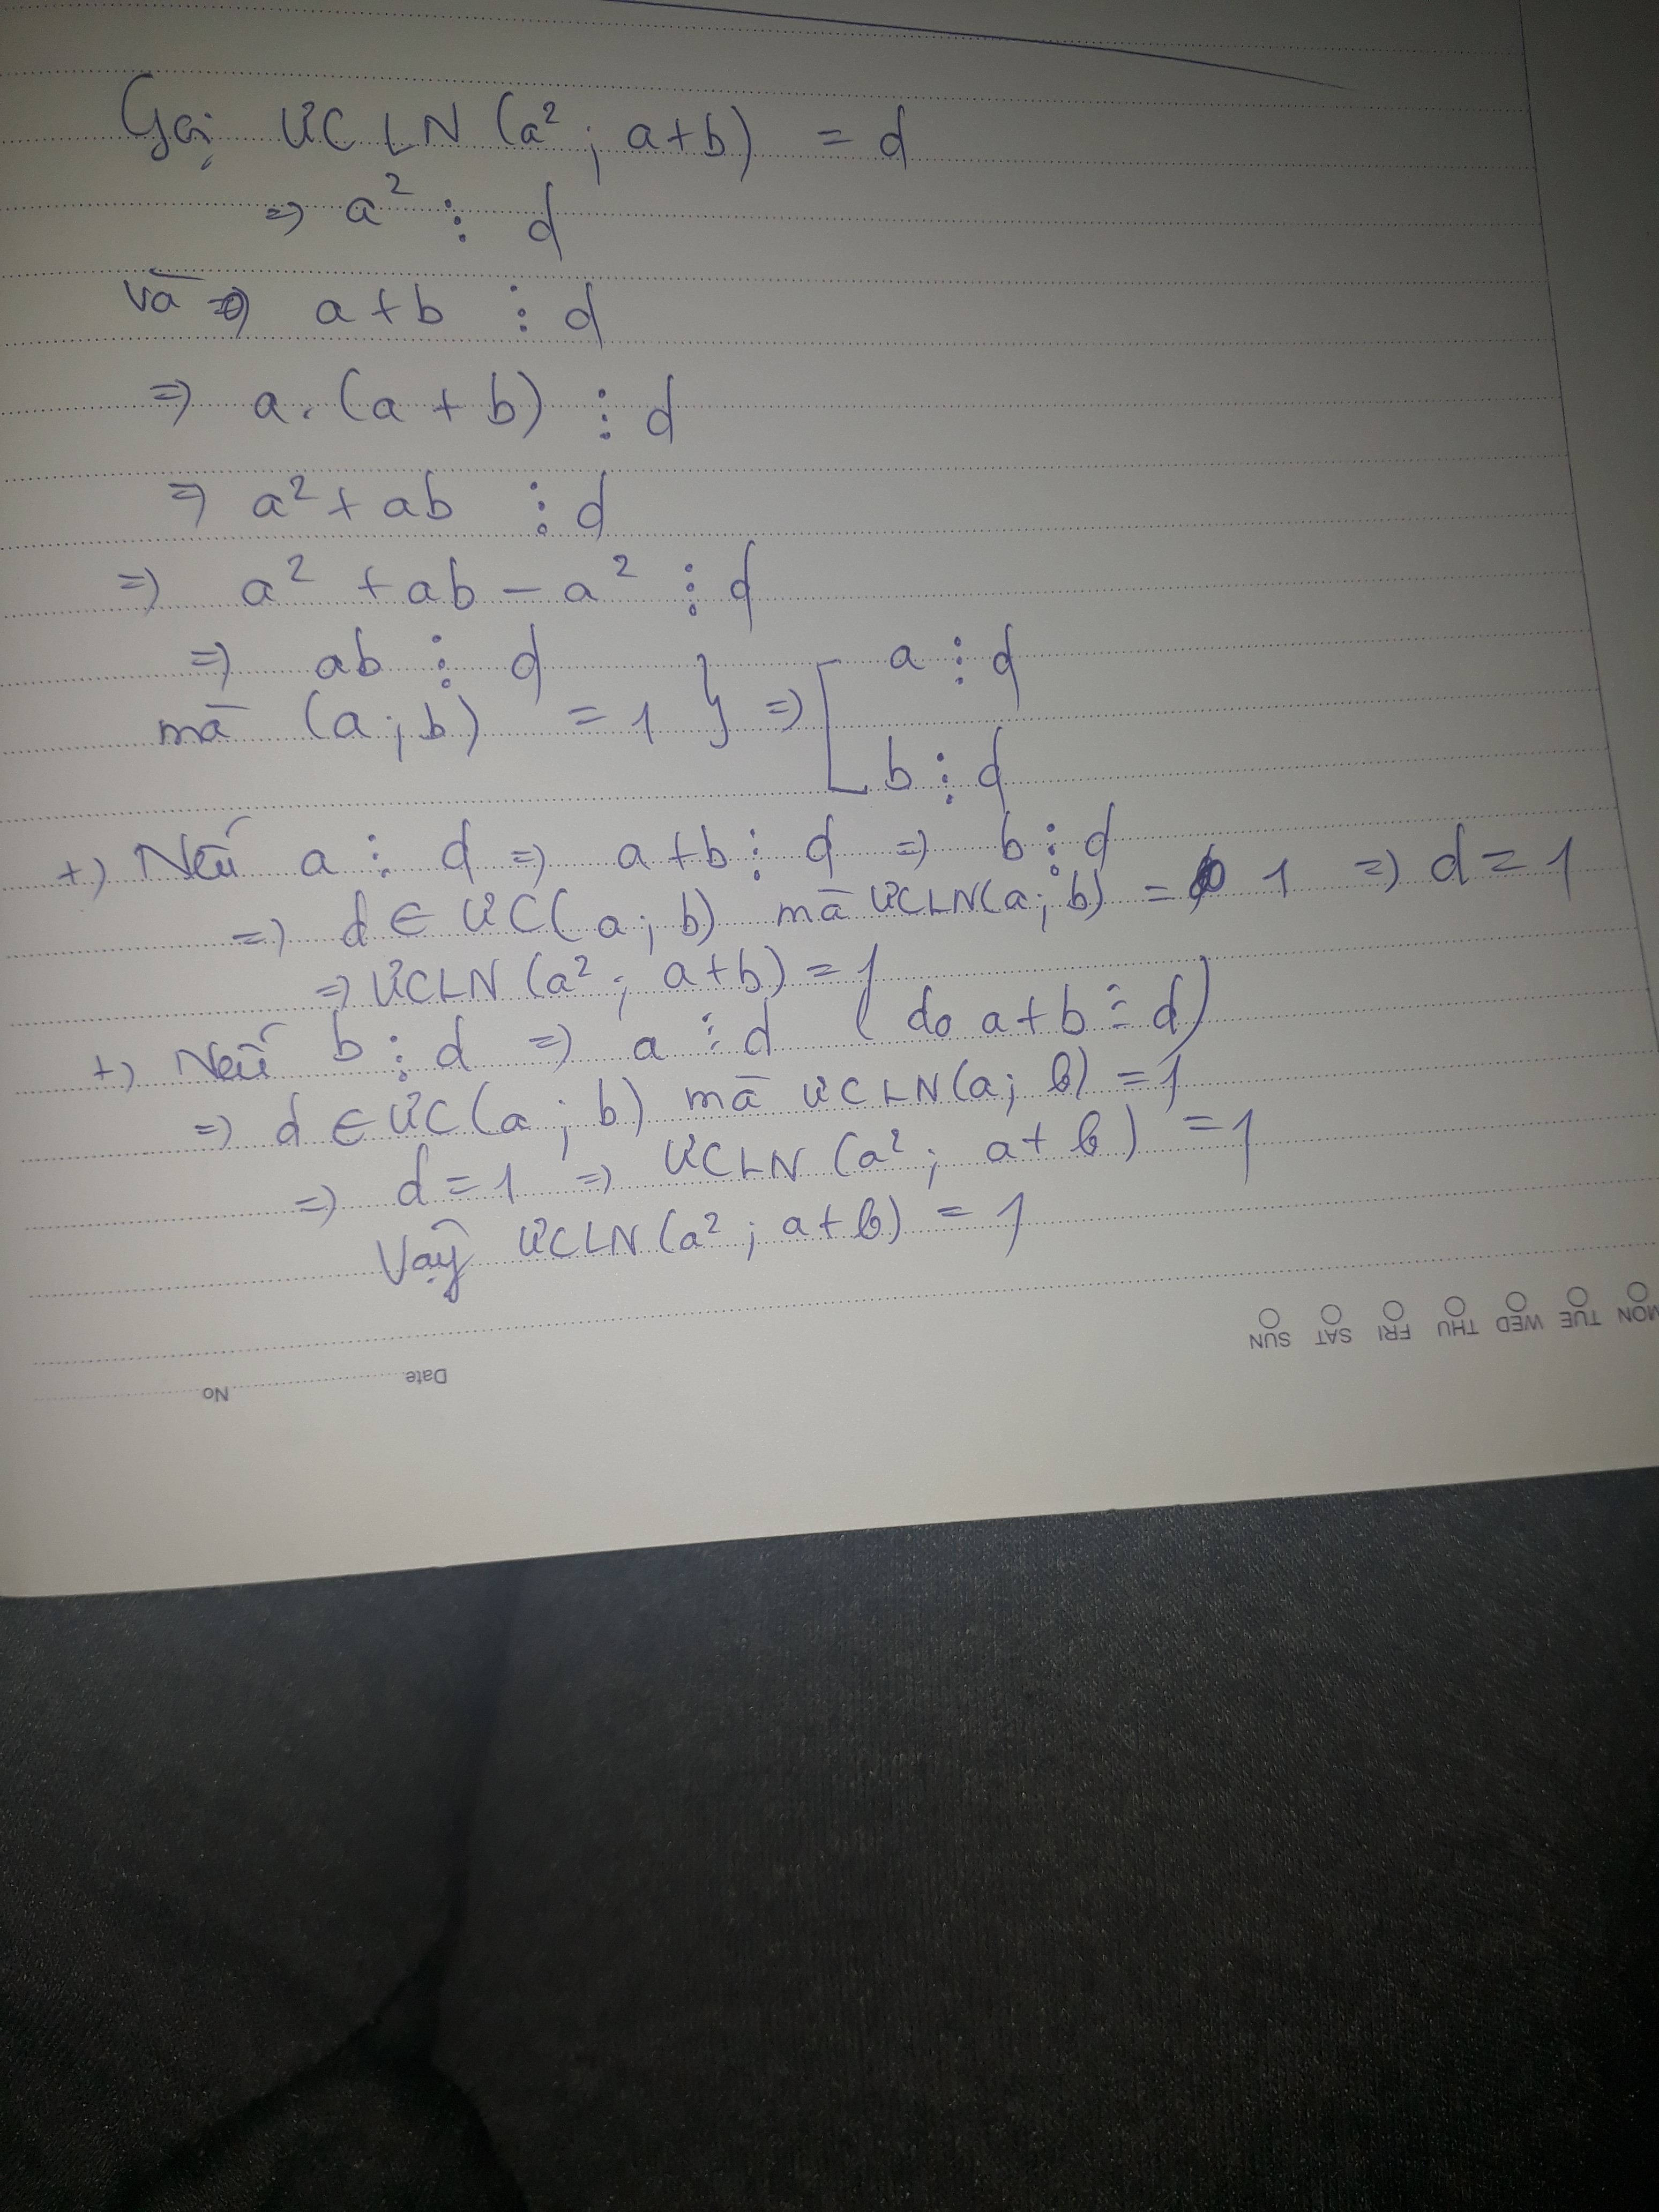 Gọi ƯCLN (a²; a+b) = d
=> a² ⋮ d
và => a+b ⋮ d
=> a.(a+b) ⋮ d
=> a²+ab ⋮ d
=> a² + ab - a² ⋮ d
=> ab ⋮ d
mà (a;b) = 1 } => [ a ⋮ d
b ⋮ d
+) Nếu a ⋮ d => a+b ⋮ d => b ⋮ d
=> d ∈ ƯC(a;b) mà ƯCLN(a;b) = 1 => d = 1
=> ƯCLN (a²; a+b) = 1
+) Nếu b ⋮ d => a ⋮ d (do a+b ⋮ d)
=> d ∈ ƯC(a;b) mà ƯCLN(a;b) = 1
=> d = 1 => ƯCLN (a²; a+b) = 1
Vậy ƯCLN(a²; a+b) = 1
MON TUE WED THU FRI SAT SUN
Date No